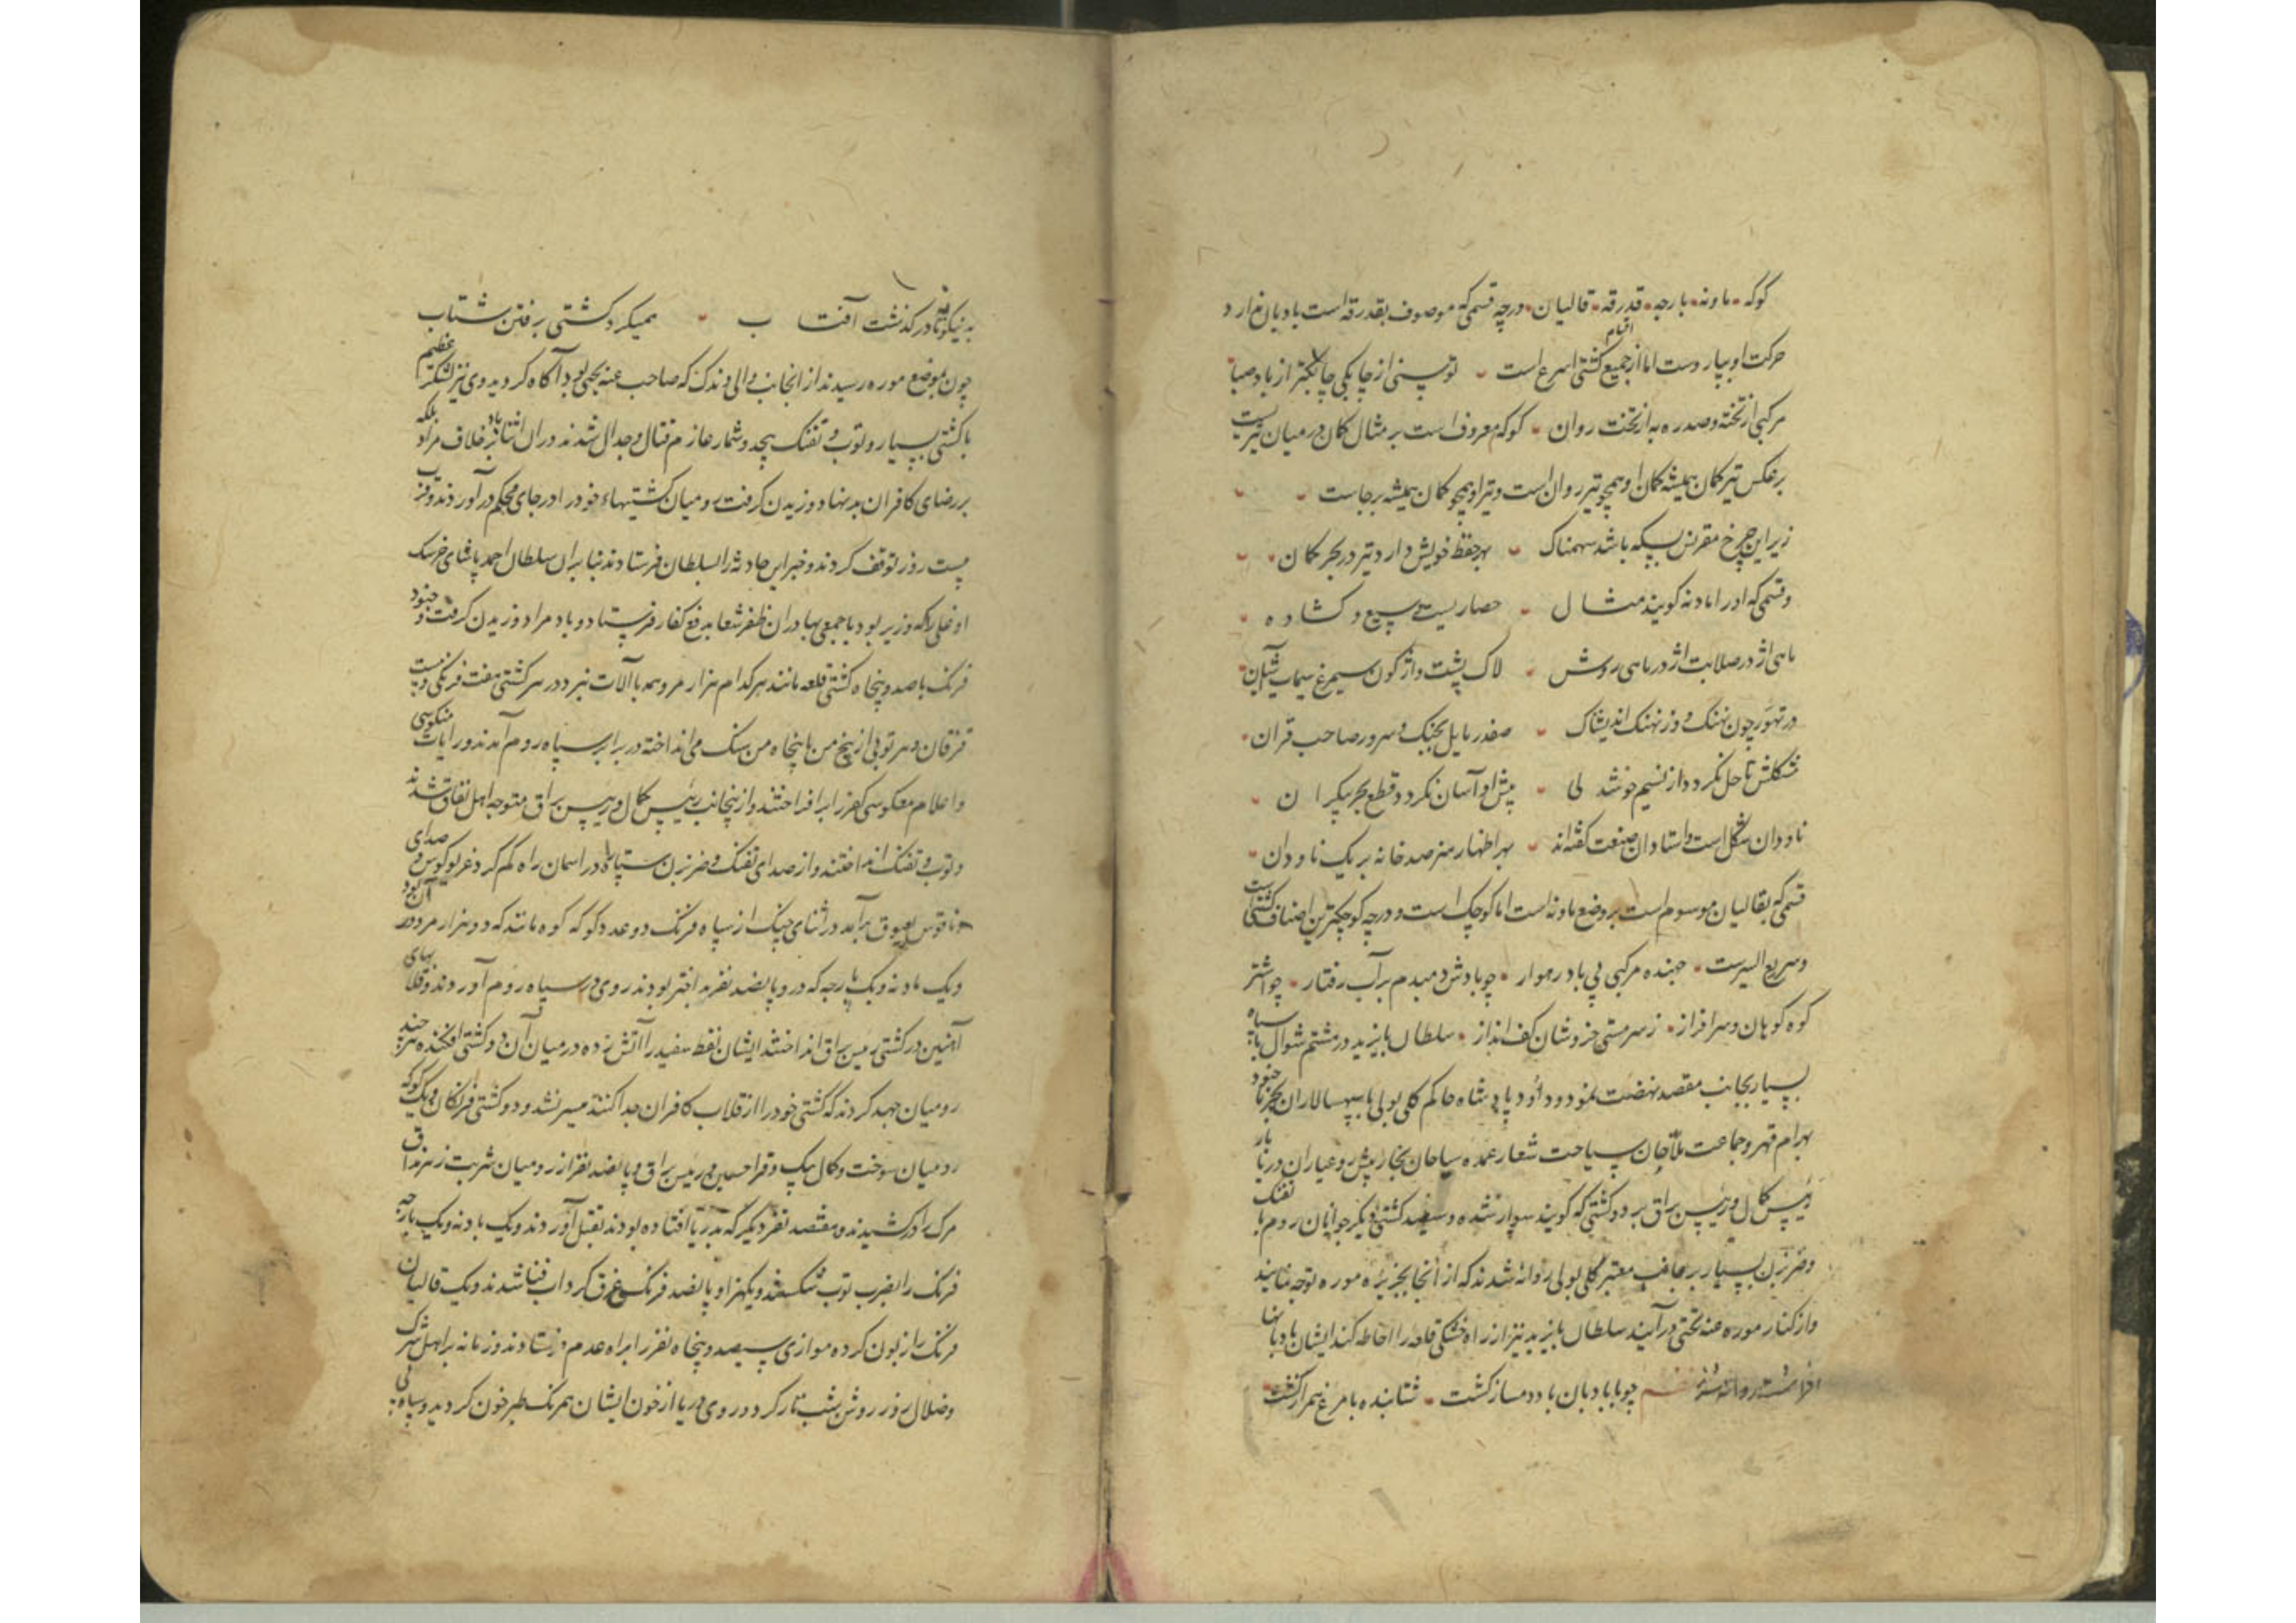 کوکه ماونه بارجه قدرقه قالیان درچه قسمی که موصوف بقدرقه است بادبان ندارد
حرکت او بپارو است اما از جمیع اقسام کشتی اسرع است توسنی از چابکی چابکتر از باد صبا
مرکبی از تخته و صدره به از تخت روان کوکه معروف است بر مثال کمان در میان تیریست
برعکس تیر کمان همیشه کمان او همچو تیر روان است و تیر او همچو کمان همیشه برجاست
زیر این چرخ مقرنس بسکه باشد سهمناک بهر حفظ خویش دارد تیر در بحر کمان
و قسمی که او را ماونه گویند مثال حصاریست وسیع و گشاده
ماهی اژدر صلابت اژدر ماهی روش لاک پشت واژگون سیمرغ سیماب آشیان
در تهور چون نهنگ و از نهنگ اندیشناک صفدر مایل بجنگ و سرور صاحب قران
مشکلش تا حل نگردد از نسیم خوشدلی پیش او آسان نگردد قطع بحر بیکران
ناودان شکل است و استادان صنعت گفته‌اند بهر اظهار هنر صد خانه بر یک ناودان
قسمی که بقالیان موسوم است بر وضع ماونه است اما کوچک است و درچه کوچکترین اصناف کشتی است
و سریع السیرست جهنده مرکبی بی باد رهوار چو بادش دمبدم بر آب رفتار چو اشتر
کوه کوهان و سرافراز ز سرمستی خروشان کف انداز سلطان بایزید در هشتم شوال با سپاه
بسیار بجانب مقصد نهضت نمود و داود پادشاه حاکم کلی بولی با سپهسالاران جنود بحر
بهرام قهر و جماعت ملاحان سیاحت شعار عمده سیاحان بحار پیش رو عیاران دریا بار
رئیس کمال و رئیس براق بر دو کشتی که گویند سوار شده و سیصد کشتی دیگر جوانان روم با تفنگ
و ضربزن بسیار بر جانب معتبر کلی بولی روانه شدند که از آنجا بجزیره موره توجه نمایند
و از کنار موره عنه بختی درآیند سلطان بایزید نیز از راه خشکی قلعه را احاطه کند ایشان بادبانها
افراشته روانه شدند چو با بادبان باد دمساز گشت شتابنده با مرغ همراز گشت
به نیکو در گذشت آفتاب همیکرد کشتی برفتن شتاب
چون بموضع موره رسیدند از انجانب والی وندک که صاحب عنه بختی بود آگاه گردید وی نیز لشکر عظیم
با کشتی بسیار و توب و تفنک بیحد و شمار عازم قتال و جدال شدند در ان اثنا باد بر خلاف مراد بلکه
بر رضای کافران بد نهاد وزیدن گرفت رومیان کشتیهاء خود را در جای محکم درآوردند و قریب
بیست روز توقف کردند و خبر این حادثه را بسلطان فرستادند بنا بران سلطان احمد پاشای خرسک
اوغلی را که وزیر بود با جمعی بهادران ظفر شعار بدفع کفار فرستاد و باد مراد وزیدن گرفت و جنود
فرنک با صد و پنجاه کشتی قلعه مانند هر کدام هزار مرد همه با آلات نبرد در هر کشتی هفت فرنکی و بیست
قزقان و هر توبی از پنج من تا پنجاه من سنک می‌انداخته در برابر سپاه روم آمدند و رایات منکوسی
و اعلام معکوسی کفر را برافراختند و ازینجانب رئیس کمال و رئیس براق متوجه اهل نفاق شدند
و توب و تفنک انداختند و از صدای تفنک و ضربزن ستاره در اسمان راه کم کرد و غریو کوس و صدای
ناقوس بعیوق برآمد در اثنای جنک از سپاه فرنک دو عدد کوکه کوه مانند که دو هزار مرد در آن بود
و یک ماونه و یک بارجه که در و پانصد نفر بد اختر بودند روی در سپاه روم آوردند و قلابهای
آهنین در کشتی رئیس براق انداختند ایشان نفط سفید را آتش زده در میان آن دو کشتی افکندند هر چند
رومیان جهد کردند که کشتی خود را از قلاب کافران جدا کنند میسر نشد و دو کشتی فرنکان و یک کوکه
رومیان سوخت و کمال بیک و قرا حسین و رئیس براق و پانصد نفر از رومیان شربت زهر مذاق
مرک را در کشیدند و هفتصد نفر دیگر که بدریا افتاده بودند بقتل آوردند و یک ماونه و یک بارجه
فرنک را بضرب توب شکستند و یکهزار و پانصد فرنک غرق کرداب فنا شدند و یک قالیان
فرنک را زبون کرده موازی سیصد و پنجاه نفر را براه عدم فرستادند و زمانه بر اهل شرک
و ضلال روز روشن شب تار کرد و روی دریا از خون ایشان همرنک طبرخون گردید و سپاه